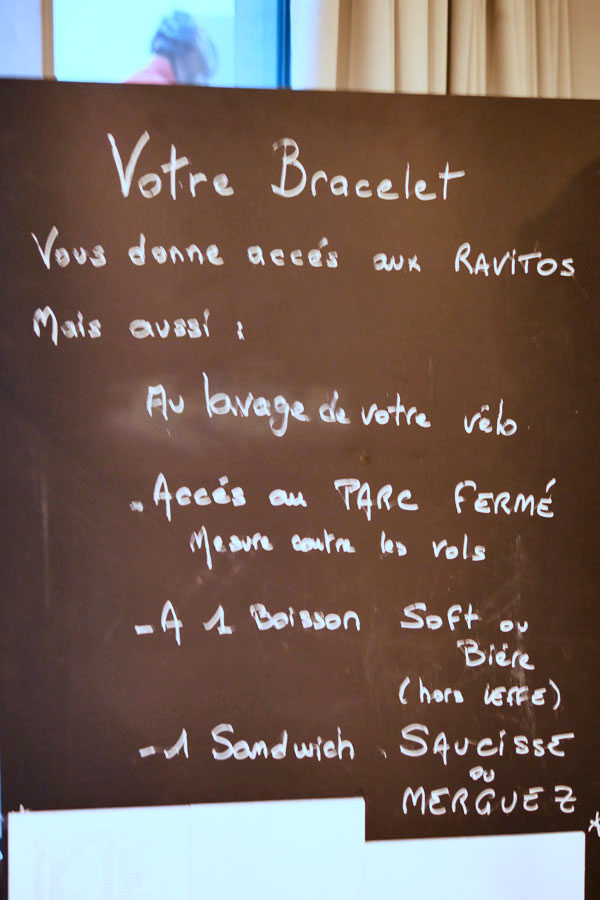 Votre Bracelet
Vous donne accés aux RAVITOS
Mais aussi :
Au lavage de votre vélo
. Accés au PARC FERMÉ
Mesure contre les vols
- A 1 Boisson Soft ou
Bière
(hors LEFFE)
- 1 Sandwich . SAUCISSE
ou
MERGUEZ